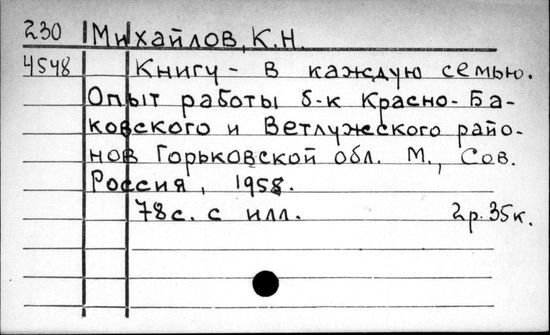 230 Михайлов, К.Н.
4548 Книгу - в каждую семью.
Опыт работы б-к Красно-Ба-
ковского и Ветлужского райо-
нов Горьковской обл. М., Сов.
Россия, 1958.
78 с. с илл. 2р. 35к.